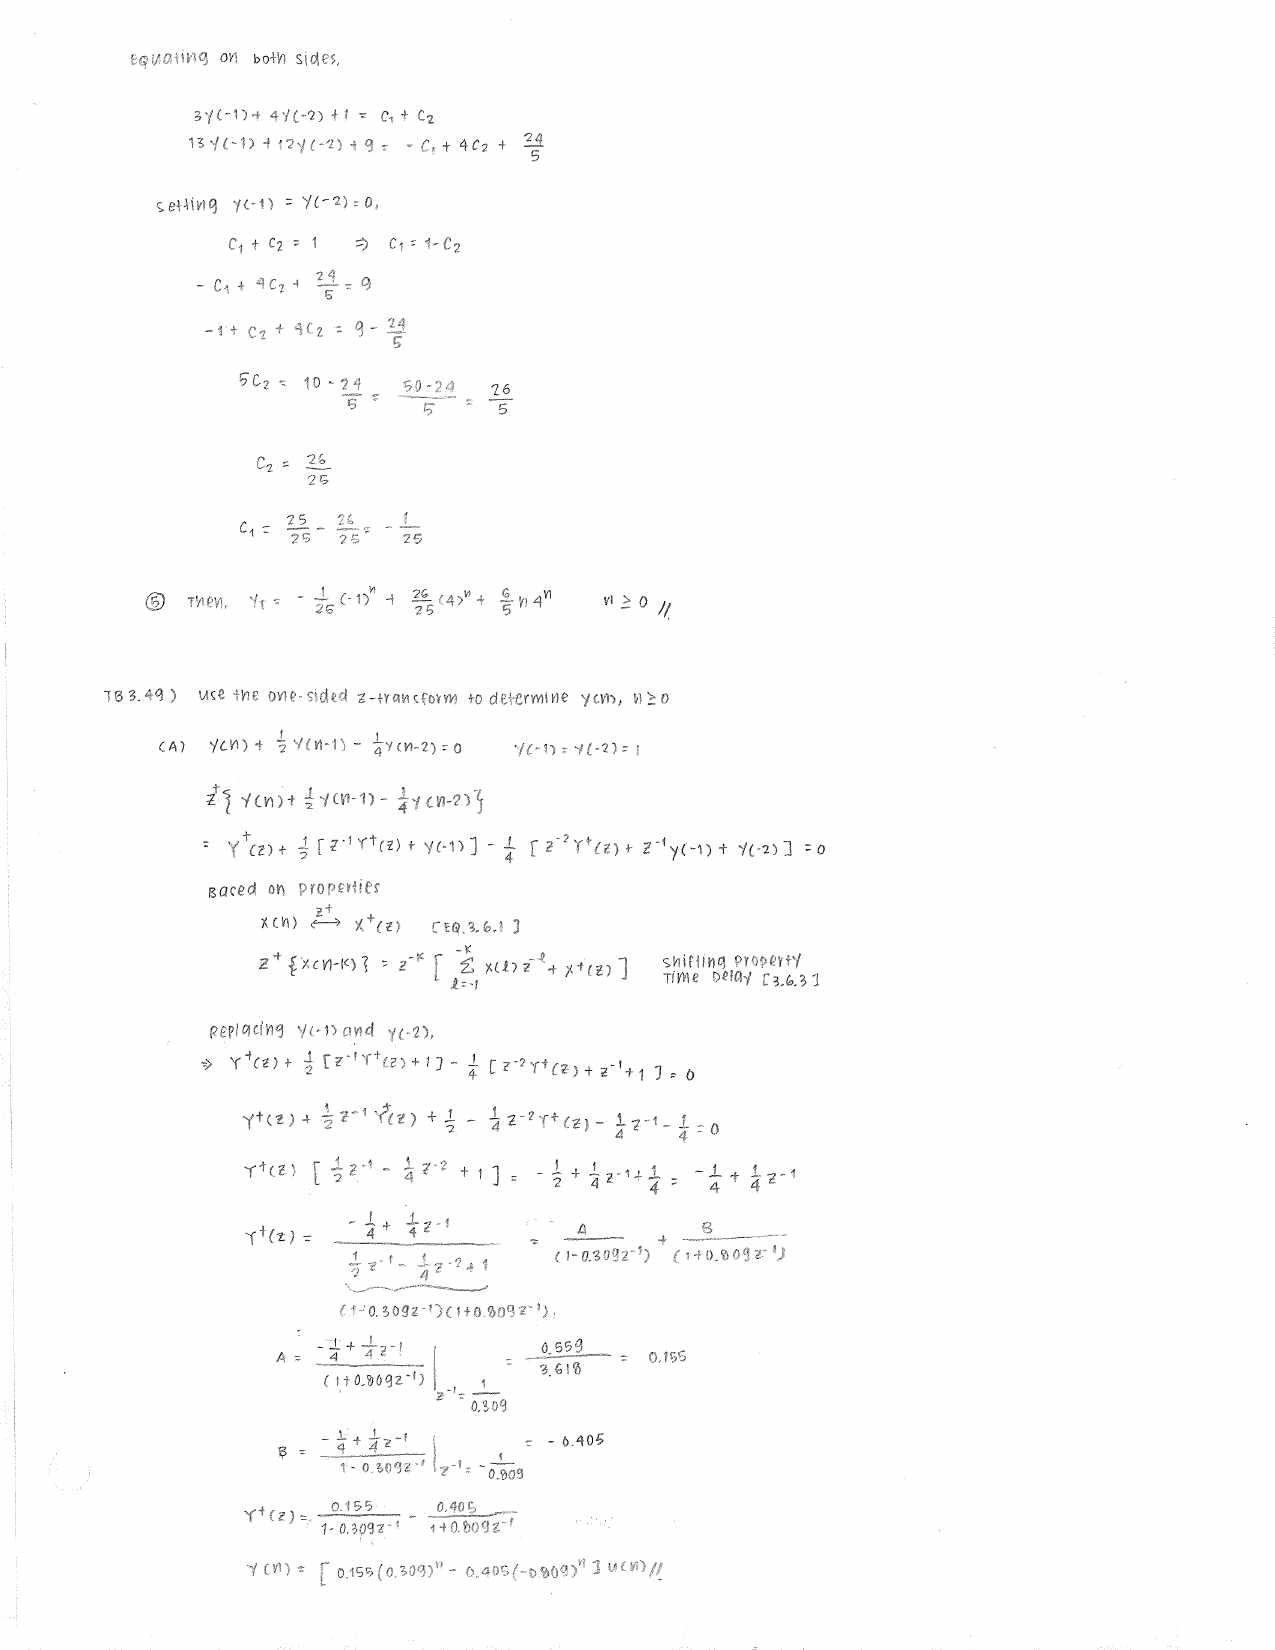 Equating on both sides,
3y(-1)+ 4y(-2) +1 = C₁ + C₂
13y(-1) + 12y(-2) + 9 = - C₁ + 4C₂ + 24/5
Setting y(-1) = y(-2) = 0,
C₁ + C₂ = 1 ⇒ C₁ = 1-C₂
- C₁ + 4C₂ + 24/5 = 9
-1 + C₂ + 4C₂ = 9 - 24/5
5C₂ = 10 - 24/5 = (50-24)/5 = 26/5
C₂ = 26/25
C₁ = 25/25 - 26/25 = - 1/25
⑤ Then, y_T = - 1/25 (-1)ⁿ + 26/25 (4)ⁿ + 6/5 n 4ⁿ n ≥ 0 //
TB 3.49) Use the one-sided z-transform to determine y(n), n ≥ 0
(A) y(n) + 1/2 y(n-1) - 1/4 y(n-2) = 0 y(-1) = y(-2) = 1
Z⁺{ y(n) + 1/2 y(n-1) - 1/4 y(n-2)}
= Y⁺(z) + 1/2 [ z⁻¹Y⁺(z) + y(-1) ] - 1/4 [ z⁻²Y⁺(z) + z⁻¹y(-1) + y(-2) ] = 0
Based on properties
x(n) ⟷ᶻ⁺ X⁺(z) [EQ.3.6.1]
z⁺ {x(n-k)} = z⁻ᵏ [ Σ_{l=-1}^{-k} x(l) z^{-l} + X⁺(z) ] Shifting property
Time Delay [3.6.3]
Replacing y(-1) and y(-2),
⇒ Y⁺(z) + 1/2 [z⁻¹Y⁺(z) + 1] - 1/4 [ z⁻²Y⁺(z) + z⁻¹ + 1 ] = 0
Y⁺(z) + 1/2 z⁻¹ Y⁺(z) + 1/2 - 1/4 z⁻²Y⁺(z) - 1/4 z⁻¹ - 1/4 = 0
Y⁺(z) [ 1/2 z⁻¹ - 1/4 z⁻² + 1 ] = - 1/2 + 1/4 z⁻¹ + 1/4 = - 1/4 + 1/4 z⁻¹
Y⁺(z) = (- 1/4 + 1/4 z⁻¹)/(1/2 z⁻¹ - 1/4 z⁻² + 1) = A/(1-0.309z⁻¹) + B/(1+0.809z⁻¹)
(1-0.309z⁻¹)(1+0.809z⁻¹).
A = (- 1/4 + 1/4 z⁻¹)/(1+0.809z⁻¹) | z⁻¹ = 1/0.309 = 0.559/3.618 = 0.155
B = (- 1/4 + 1/4 z⁻¹)/(1 - 0.309z⁻¹) | z⁻¹ = - 1/0.809 = - 0.405
Y⁺(z) = 0.155/(1-0.309z⁻¹) - 0.405/(1+0.809z⁻¹)
y(n) = [ 0.155(0.309)ⁿ - 0.405(-0.809)ⁿ ] u(n) //